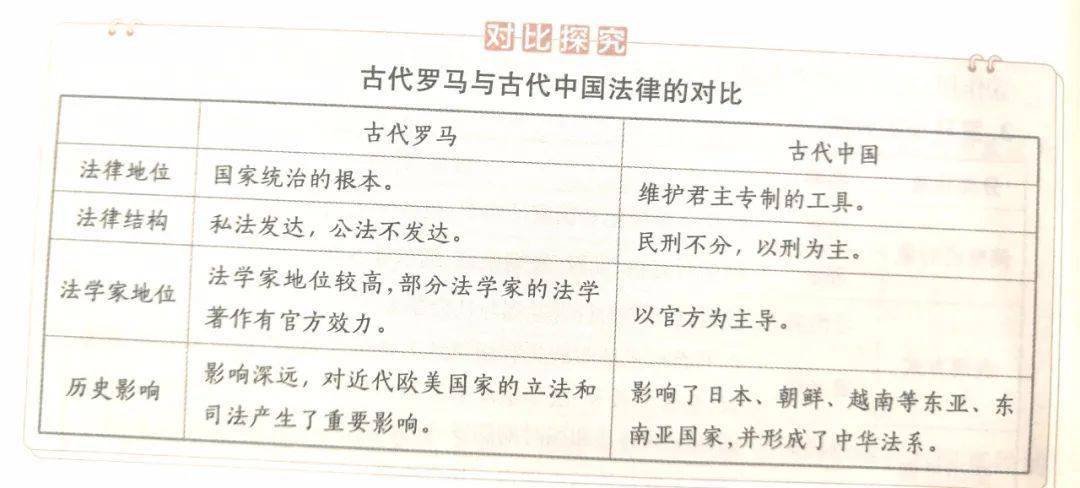 对比探究
古代罗马与古代中国法律的对比
古代罗马
古代中国
法律地位
国家统治的根本。
维护君主专制的工具。
法律结构
私法发达，公法不发达。
民刑不分，以刑为主。
法学家地位
法学家地位较高，部分法学家的法学
著作有官方效力。
以官方为主导。
历史影响
影响深远，对近代欧美国家的立法和
司法产生了重要影响。
影响了日本、朝鲜、越南等东亚、东
南亚国家，并形成了中华法系。